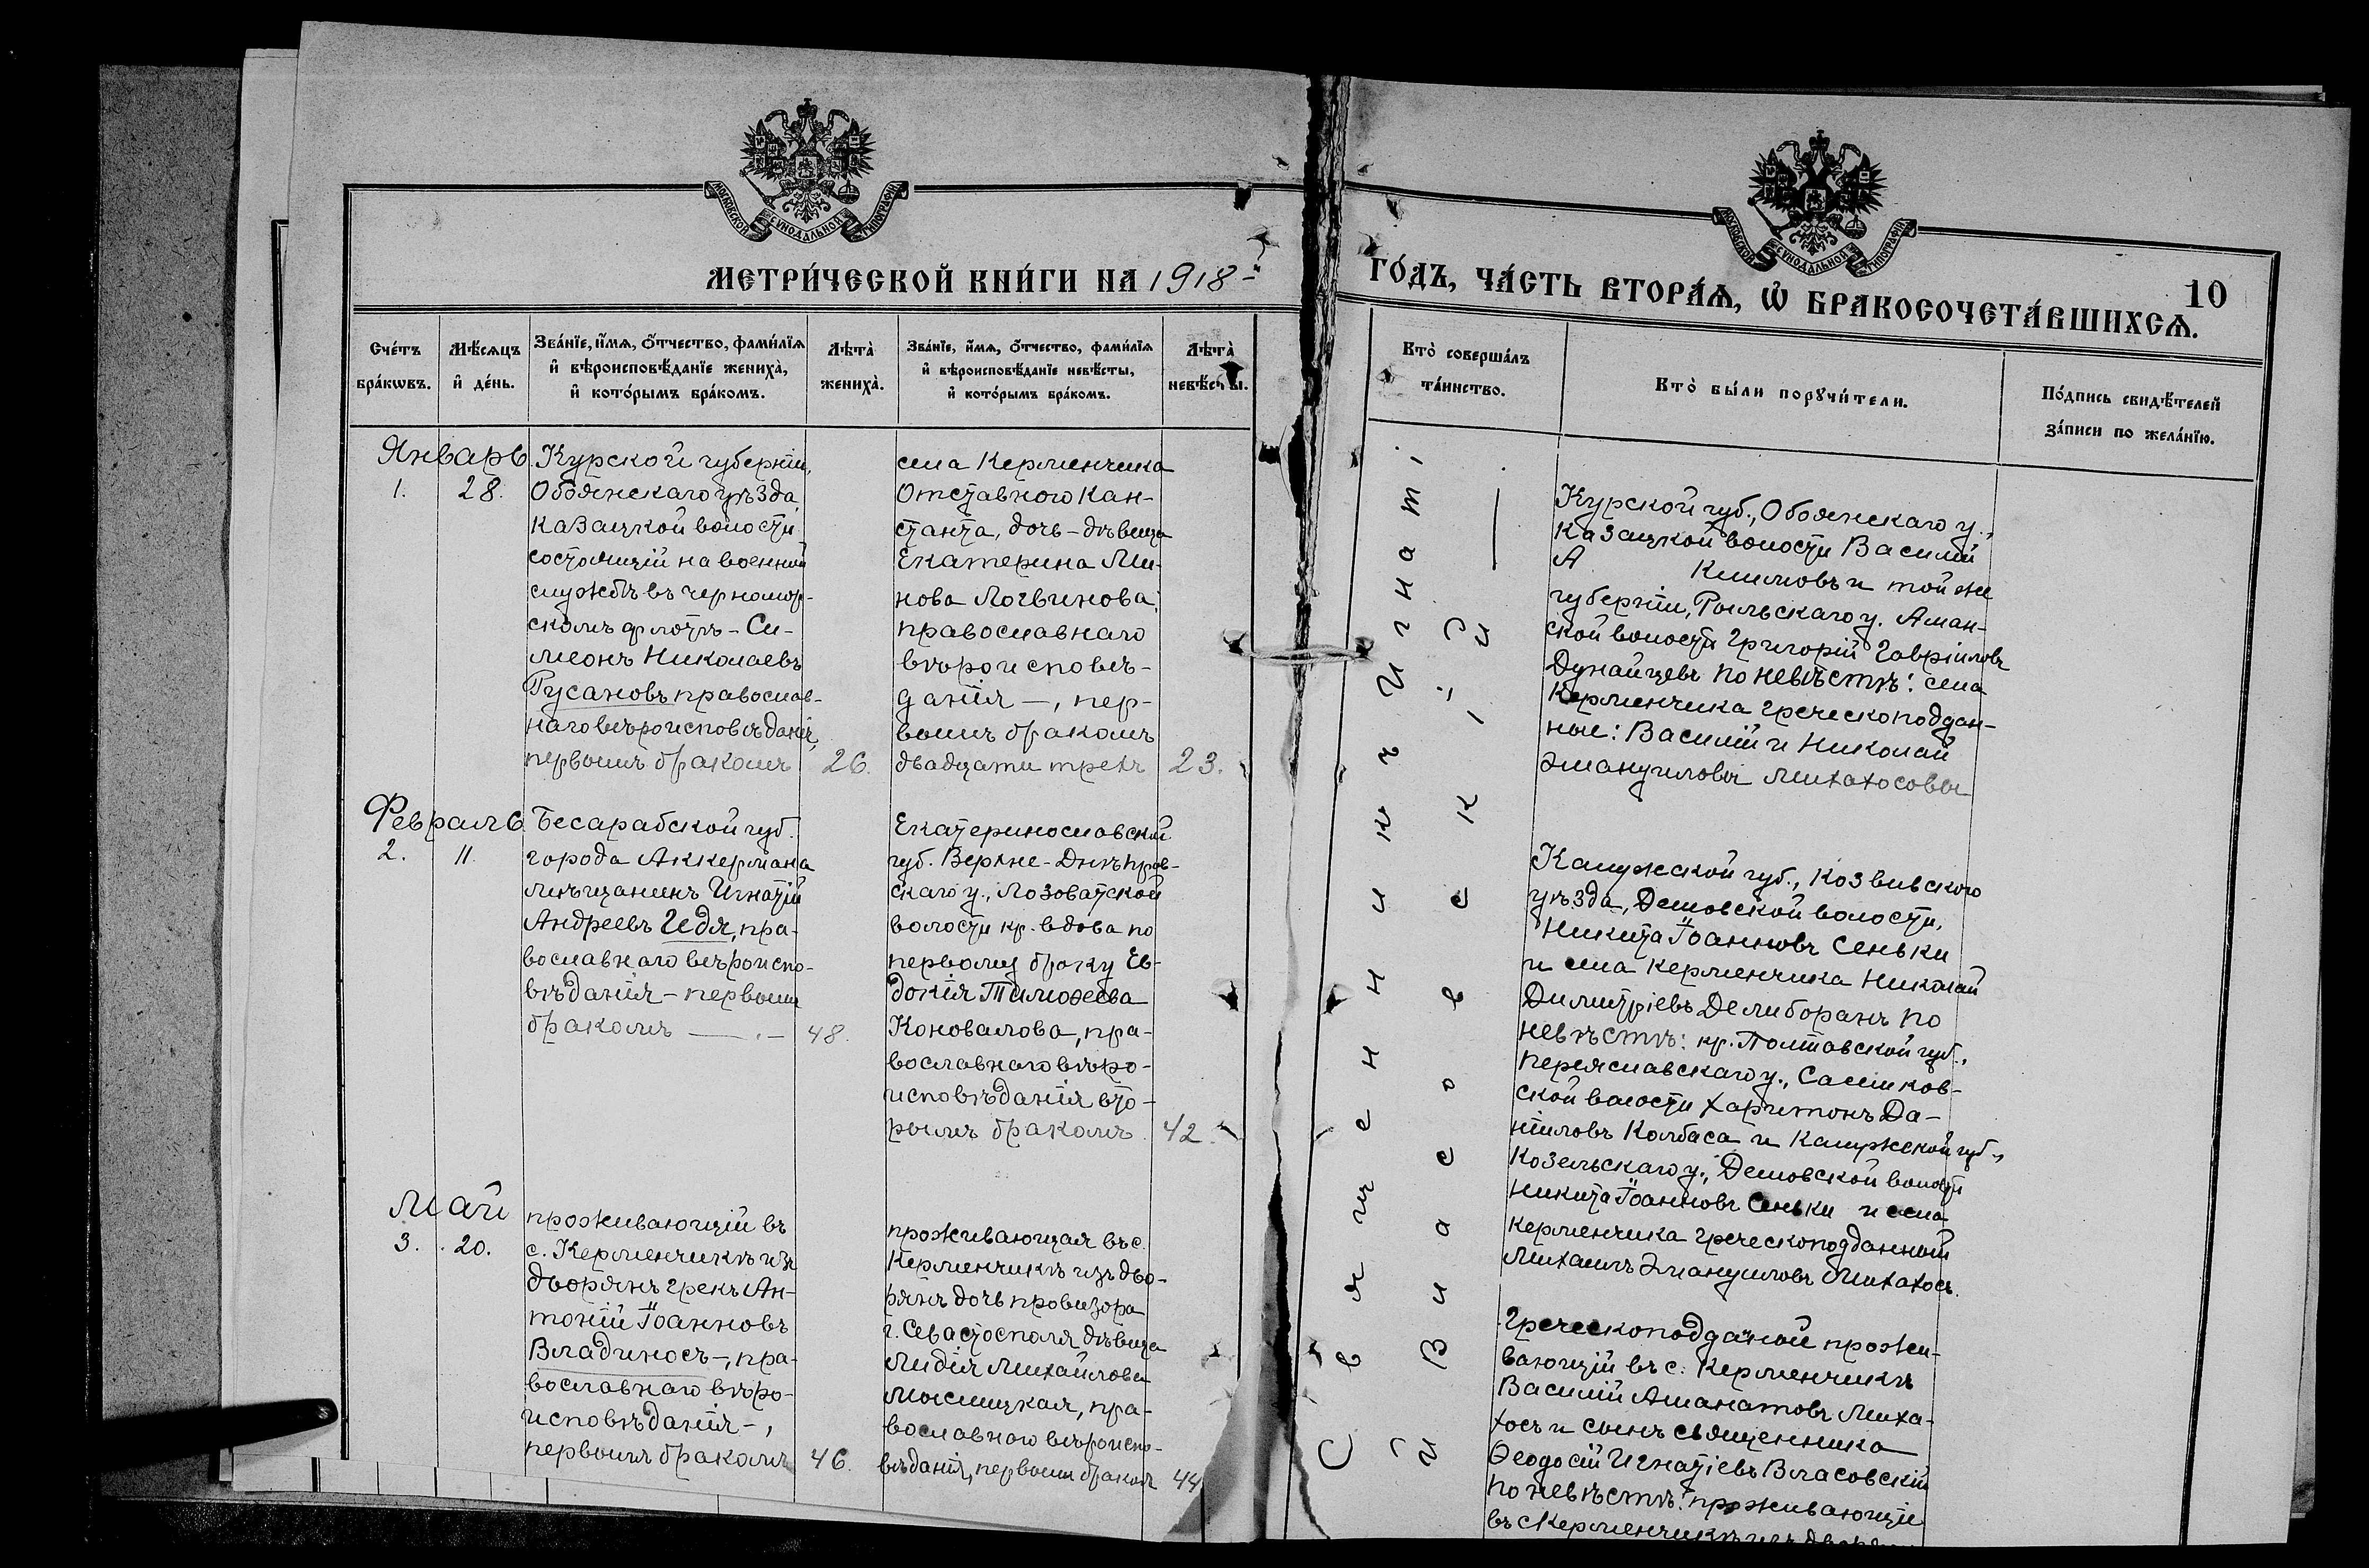 МОСКОВСКОЙ СѴНОДАЛЬНОЙ ТИПОГРАФІИ
МЕТРИ́ЧЕСКОЙ КНИ́ГИ НА 1918
Сче́тъ
бра́кѡвъ.
Мѣ́сяцъ
и҆ де́нь.
Зва́нїе, и҆́мя, ѻ҆́тчество, фами́лїя
и҆ вѣроисповѣ́данїе жениха̀,
и҆ кото́рымъ бра́комъ.
Лѣта̀
жениха̀.
Зва́нїе, и҆́мя, ѻ҆́тчество, фами́лїя
и҆ вѣроисповѣ́данїе невѣ́сты,
и҆ кото́рымъ бра́комъ.
Лѣта̀
невѣ́сты.
Январь
1.
28.
Курской губерніи,
Обоянскаго уѣзда
казацкой волости
состоящій на военной
службѣ въ черномор-
скомъ флотѣ - Си-
меонъ Николаевъ
Русановъ православ-
наго вѣроисповѣданія,
первымъ бракомъ
26.
села Керменчика
Отставного Кан-
станта, дочь - дѣвица
Екатерина Ми-
нова Логвинова
православнаго
вѣроисповѣ-
данія —, пер-
вымъ бракомъ
двадцати трехъ
23.
Февраль
2.
11.
Бесарабской губ.
города Аккермана
мѣщанинъ Игнатій
Андреевъ Гедя, пра-
вославнаго вѣроиспо-
вѣданія - первымъ
бракомъ
48.
Екатеринославской
губ. Верхне-Днѣпров-
скаго у., Лозоватской
волости кр. вдова по
первому браку Ев-
докія Тимоѳеева
Коновалова, пра-
вославнаго вѣро-
исповѣданія вто-
рымъ бракомъ
42.
Май
3.
20.
проживающій въ
с. Керменчикѣ изъ
дворянъ грекъ Ан-
тоній Іоанновъ
Владиносъ -, пра-
вославнаго вѣро-
исповѣданія -,
первымъ бракомъ
46.
проживающая въ с.
Керменчикѣ изъ дво-
рянъ дочь провизора
г. Севастосполя дѣвица
Лидія Михайлова
Мокицкая, пра-
вославнаго вѣроиспо-
вѣданія, первымъ бракомъ
44
МОСКОВСКОЙ СѴНОДАЛЬНОЙ ТИПОГРАФІИ
10
ГО́ДЪ, ЧА́СТЬ ВТОРА́Я, Ѡ҆ БРАКОСОЧЕТА́ВШИХСЯ.
Кто̀ соверша́лъ
та́инство.
Кто̀ бы́ли порꙋчи́тели.
По́дпись свидѣ́телей
за́писи по жела́нїю.
Священникъ Игнатій
Власовскій
Курской губ., Обоянскаго у.,
казацкой волости Василій
А Климовъ и той же
губерніи, Рыльскаго у. Аман-
ской волости Григорій Гавріиловъ
Дунайцевъ по невѣстѣ: села
Керменчика греческоподдан-
ные: Василій и Николай
Эмануиловы Михахосовы
Калужской губ., Козвивского
уѣзда, Демовской волости,
Никита Іоанновъ Сеньки
и села керменчика Николай
Димитріевъ Делиборанъ по
невѣстѣ: кр. Полтавской губ.,
Переяславскаго у., Самиков-
ской волости Харитонъ Да-
ніиловъ Колбаса и Калужской губ.,
Козельскаго у., Демовской волости
Никита Іоанновъ Сеньки и села
керменчика греческоподданный
Михаилъ Эмануиловъ Михахосъ.
Греческоподданой прожи-
вающій въ с. Керменчикѣ
Василій Аманатовъ Миха-
хосъ и сынъ священника
Ѳеодосій Игнатіевъ Власовскій
по невѣстѣ: проживающіе
въ с Керменчикѣ изъ дворян